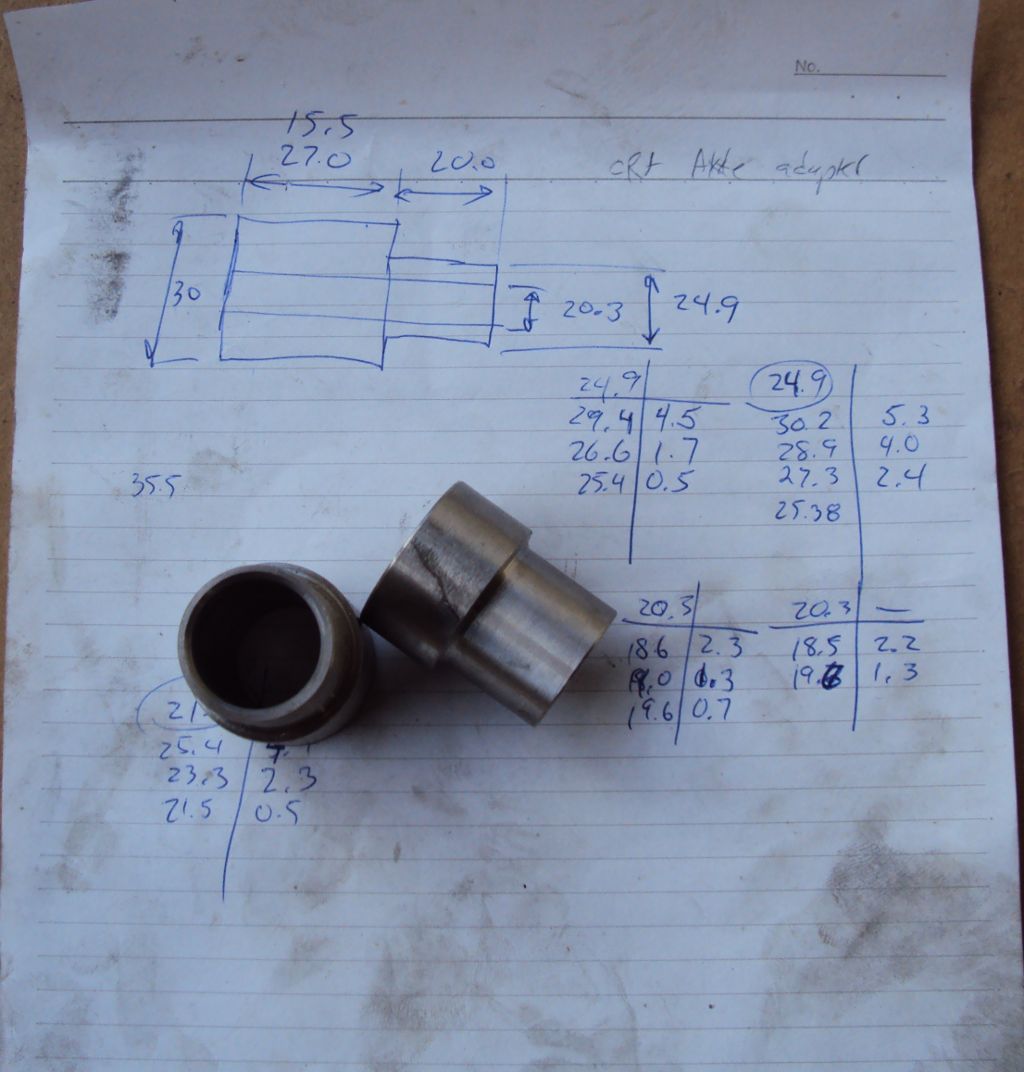 No.
15.5
27.0 20.0
30
20.3 24.9
24.9
29.4 4.5
26.6 1.7
25.4 0.5
24.9
30.2 5.3
28.9 4.0
27.3 2.4
25.38
35.5
20.3
18.6 2.3
1.3
19.6 0.7
20.3 —
18.5 2.2
1.3
25.4
23.3 2.3
21.5 0.5